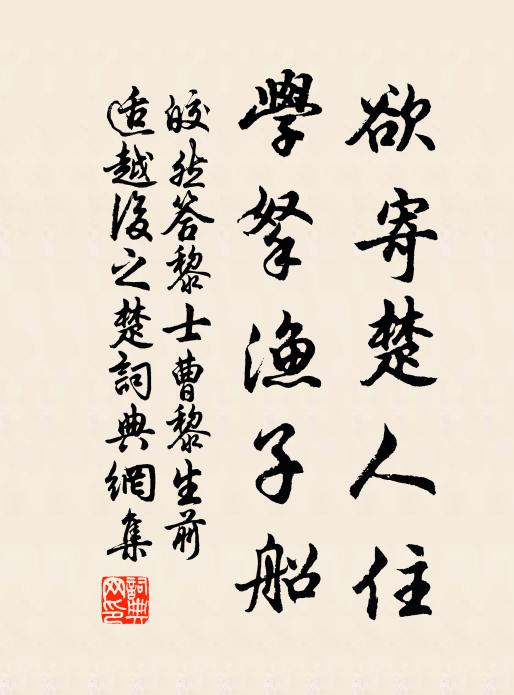 欲寄楚人住
學拏漁子船
皎然答黎士曹黎生前
适越後之楚詞典網集
詞典網印